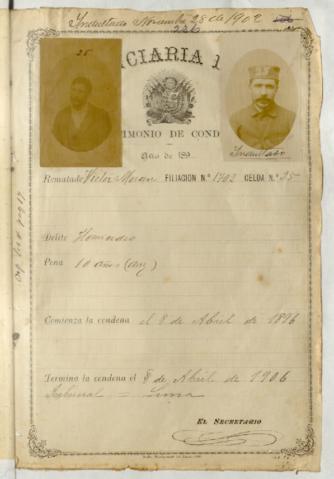 Indultado Noviembre 28 de 1902
226
25
CIARIA
Indultado
IMONIO DE COND
Año de 189
Rematado Victor Moran FILIACION N.° 1702 CELDA N.° 25
Delito Homicidio
Pena 10 años (diez)
Comienza la condena el 8 de Abril de 1896
Termina la condena el 8 de Abril de 1906
Tribunal = Lima
EL SECRETARIO